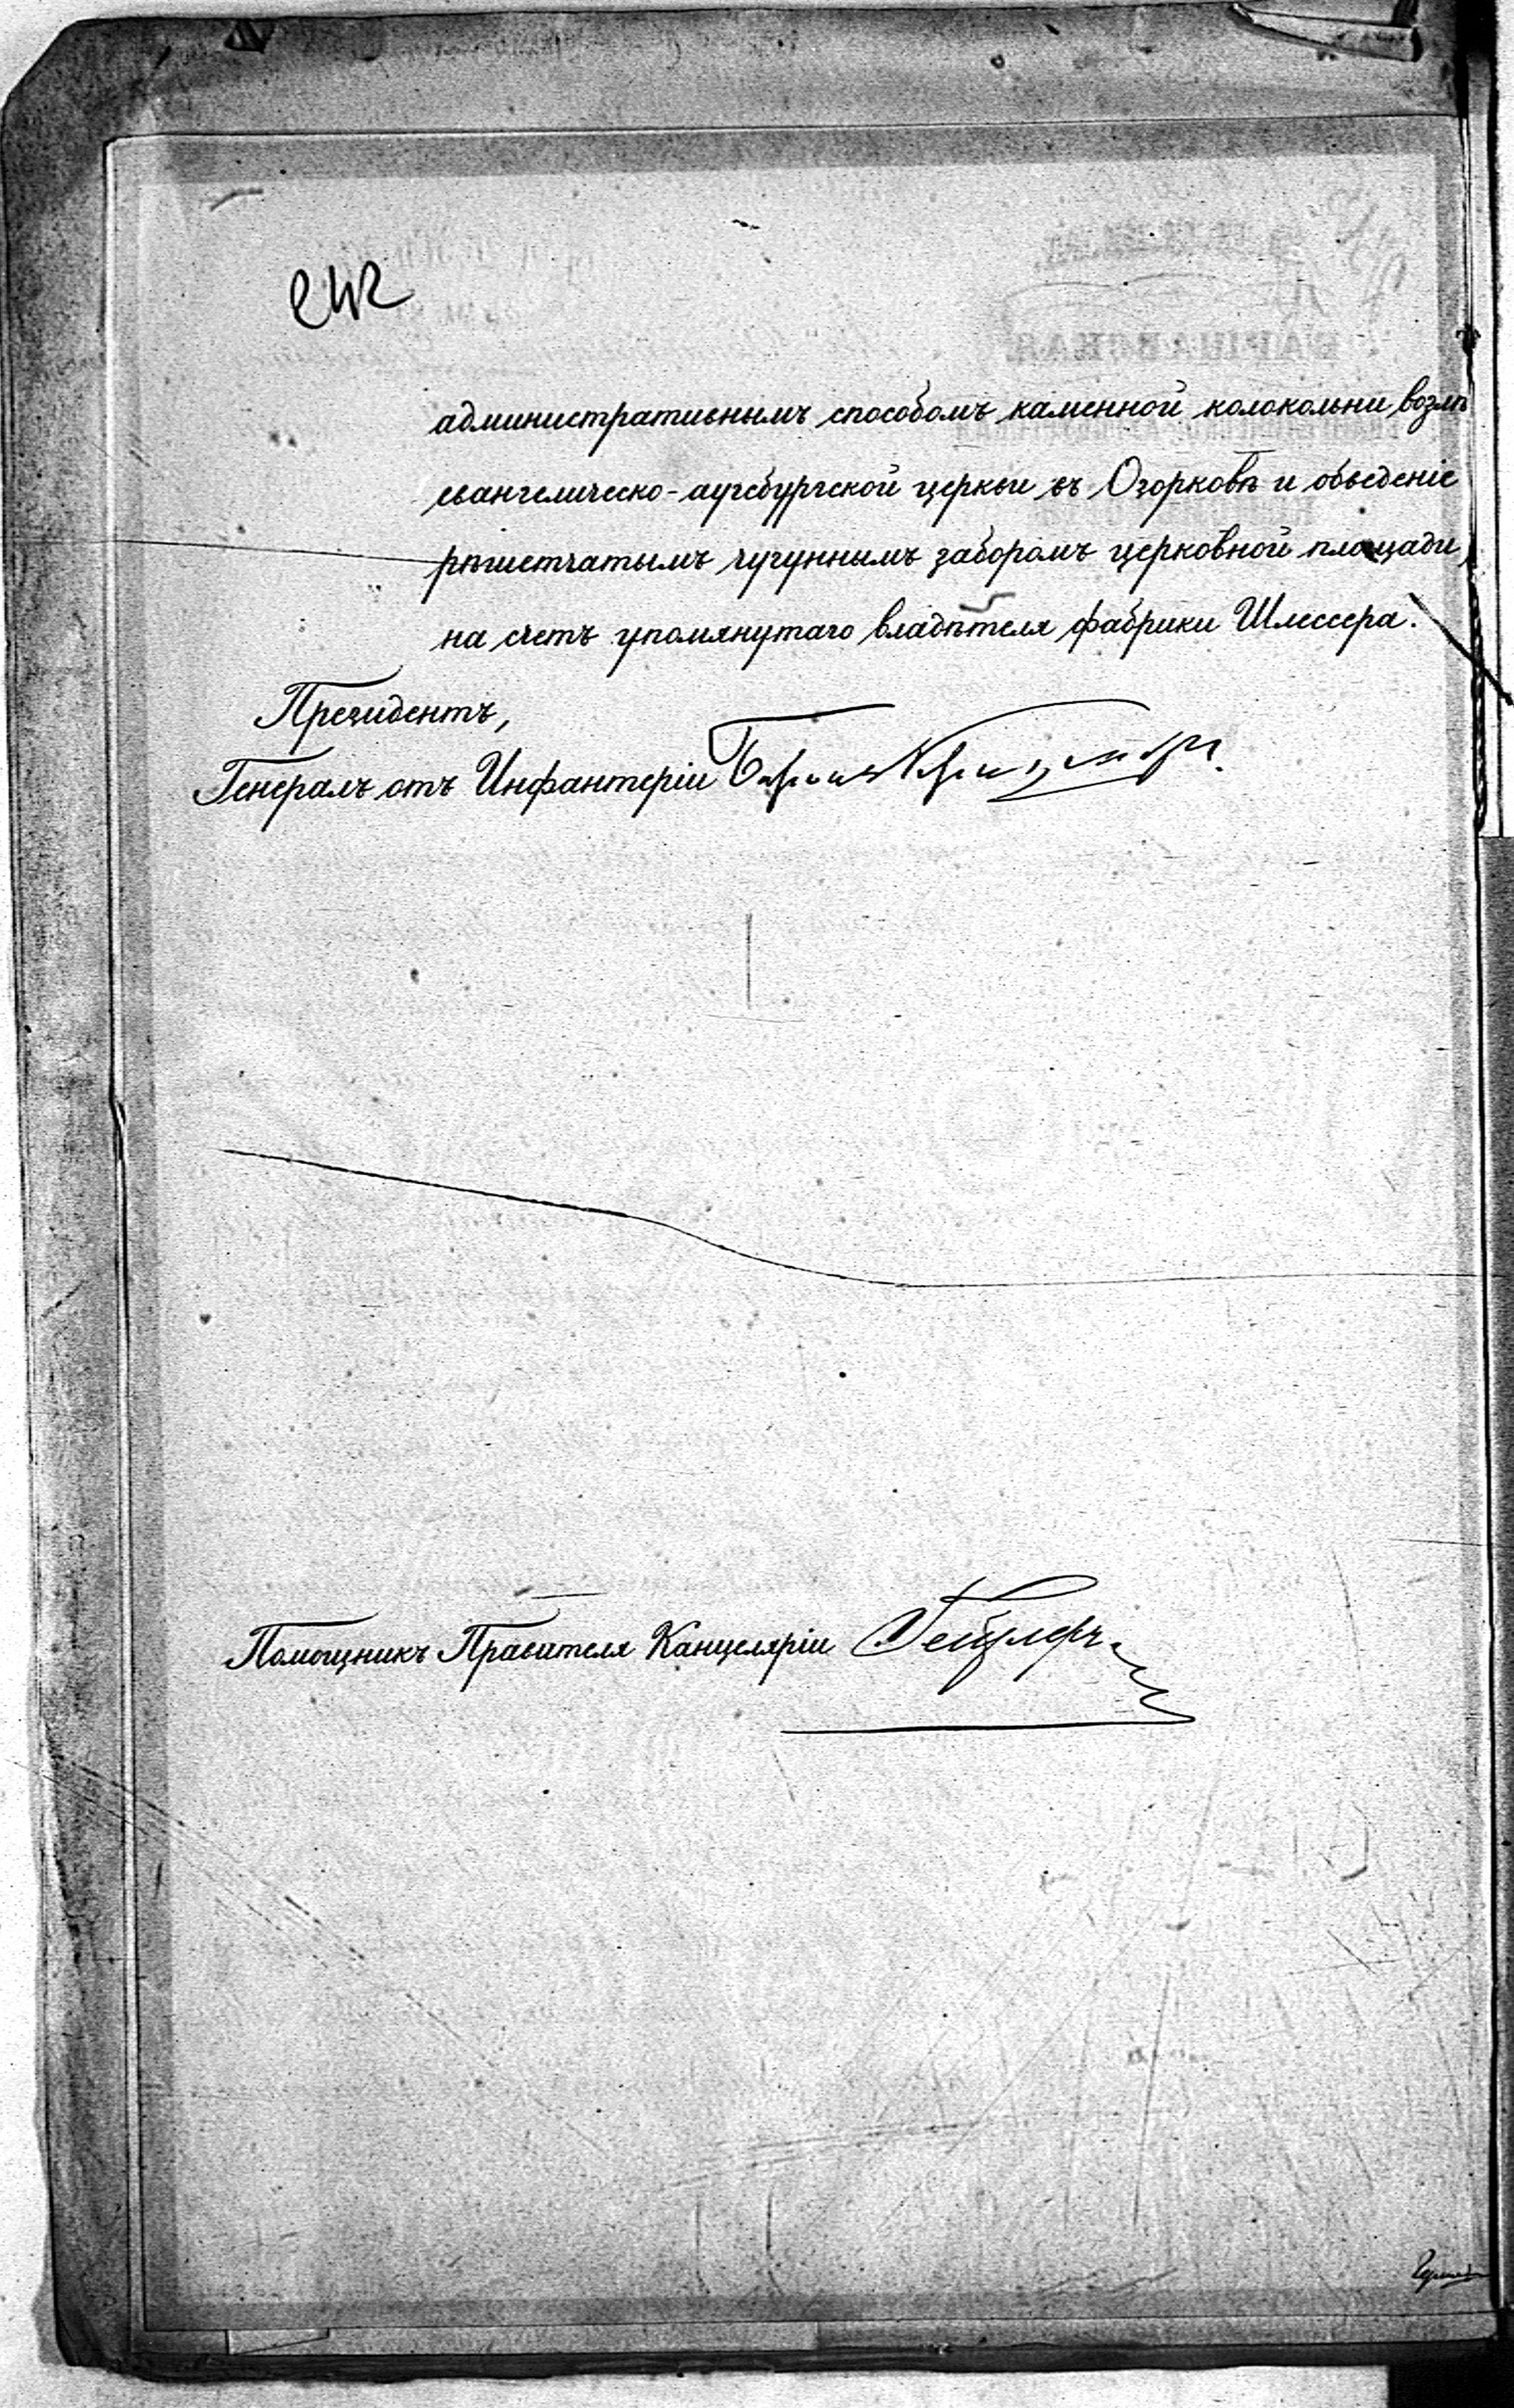 административнымъ способомъ каменной колокольни возлѣ
евангелическо-аугсбургской церкви въ Озорковѣ и обведеніе
рѣшетчатымъ чугуннымъ заборомъ церковной площади,
на счетъ упомянутаго владѣтеля фабрики Шлессера.
Президентъ,
Генералъ отъ Инфантеріи
Помощникъ Правителя Канцеляріи